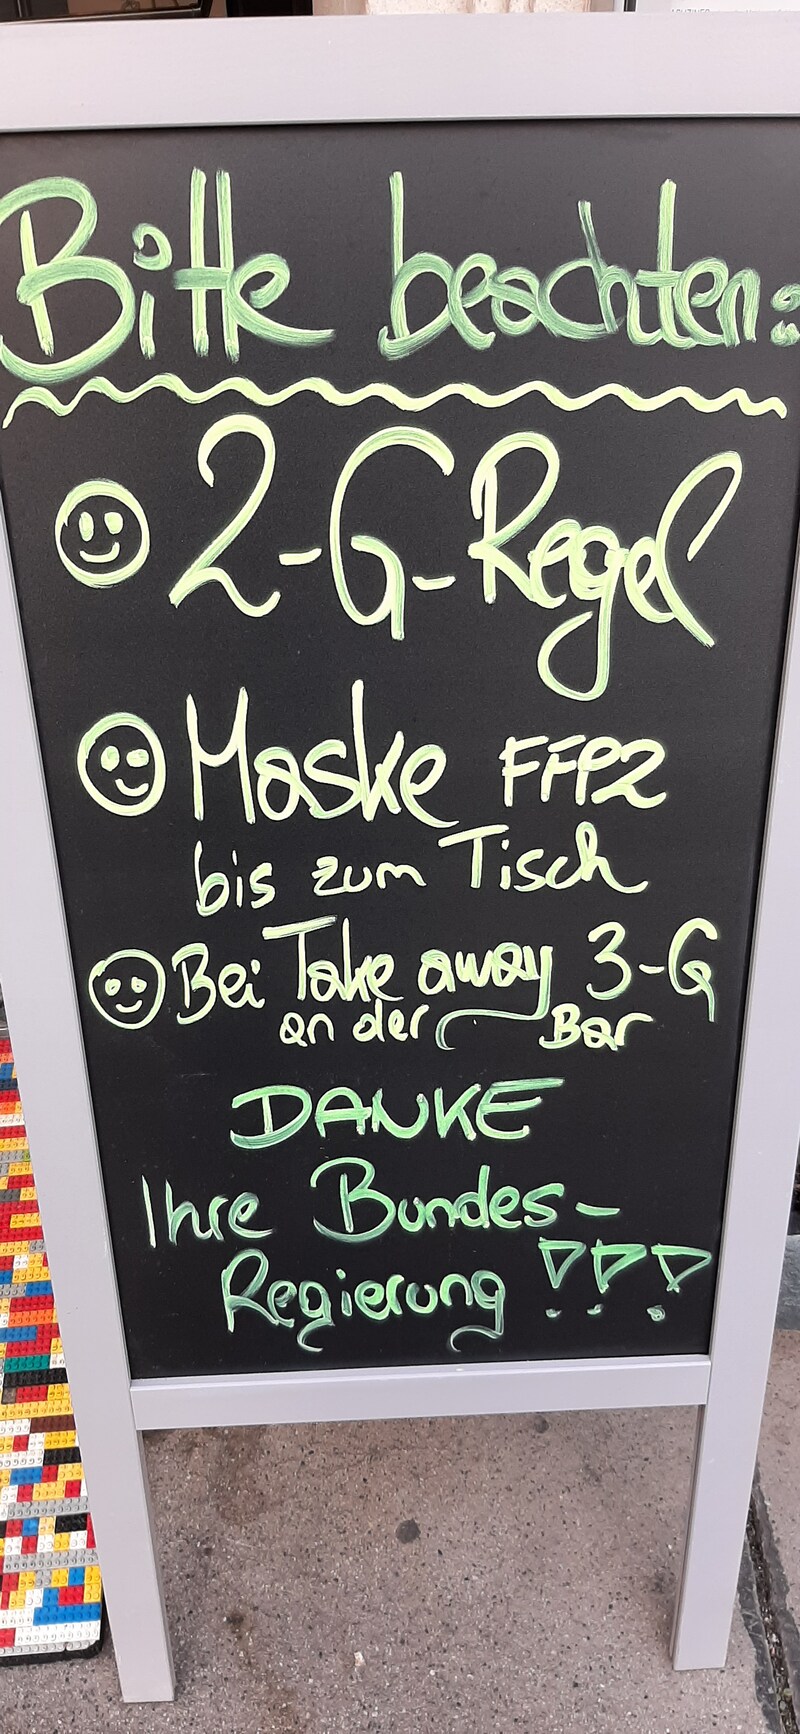 Bitte beachten:
2-G-Regel
Maske FFP2
bis zum Tisch
Bei Take away 3-G
an der Bar
DANKE
Ihre Bundes-
Regierung !!!